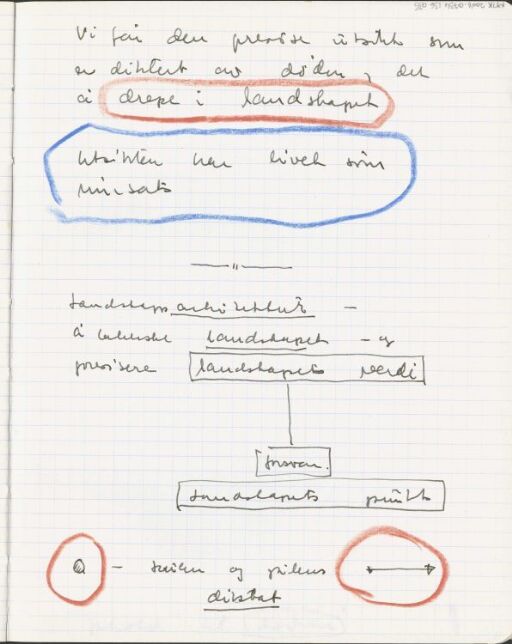 Vi får den presise utsikt som
er diktert av døden, det
å drepe i landskapet
Utsikten har livet som
innsats
Landskapsarkitektur –
å beherske landskapet – og
presisere landskapets verdi
forsvar.
landskapets punkt
– og pilens
diktat